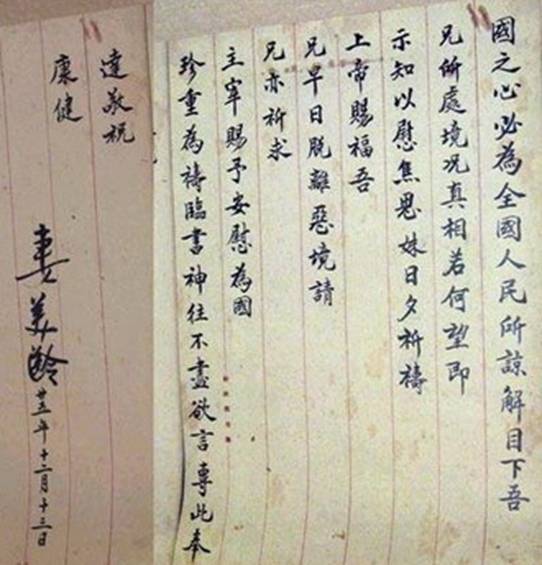 國之心必為全國人民所諒解目下吾
兄所處境况真相若何望即
示知以慰焦思妹日夕祈禱
上帝賜福吾
兄早日脫離惡境請
兄亦祈求
主宰賜予安慰為國
珍重為禱臨書神往不盡欲言專此奉
達敬祝
康健
妻美齡
廿五年十二月十三日